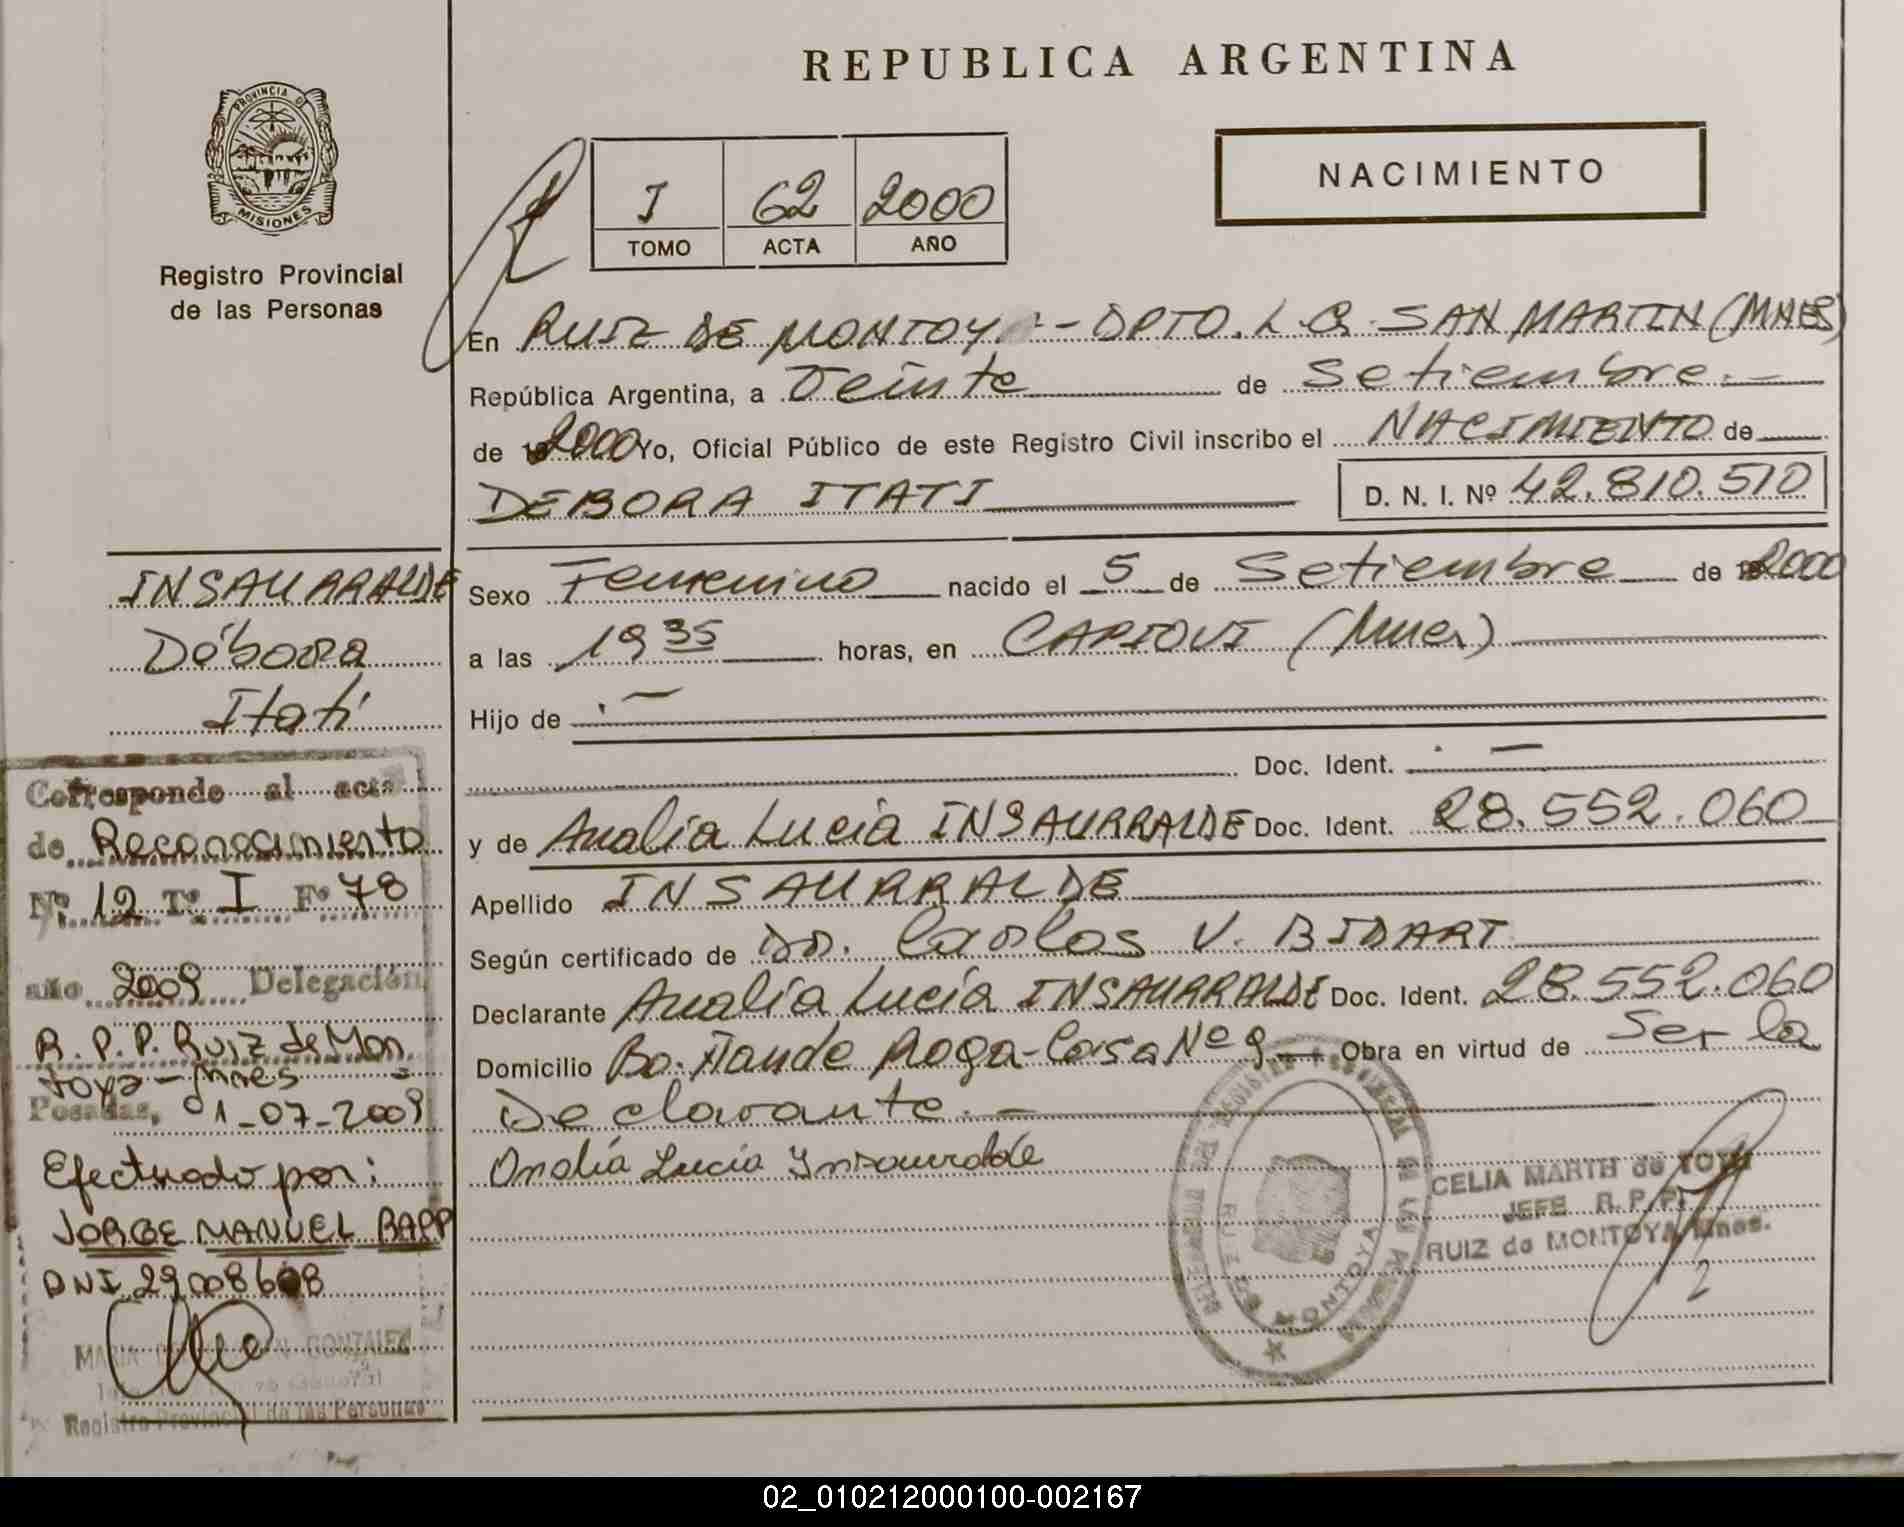 REPUBLICA ARGENTINA
PROVINCIA DE
MISIONES
Registro Provincial
de las Personas
I 62 2000
TOMO ACTA AÑO
NACIMIENTO
En RUIZ DE MONTOY - DPTO. L. G. SAN MARTIN (MNES)
República Argentina, a Veinte de Setiembre.-
de 2000 Yo, Oficial Público de este Registro Civil inscribo el NACIMIENTO de
DEBORA ITATI D. N. I. Nº 42.810.510
Sexo Femenino nacido el 5 de Setiembre de 2000
a las 19 35 horas, en CAPIOVI (Mnes)
Hijo de .-
Doc. Ident. .-
y de Analía Lucía INSAURRALDE Doc. Ident. 28.552.060
Apellido INSAURRALDE
Según certificado de Dr. Carlos V. BIDART
Declarante Analía Lucía INSAURRALDE Doc. Ident. 28.552.060
Domicilio Bo. Ñande Roga-Casa Nº 9 - Obra en virtud de Ser la
Declarante.-
Analía Lucía Insaurralde
CELIA MARTH de
JEFE R. P. P.
RUIZ de MONTOYA Mnes.
RUIZ DE MONTOYA
INSAURRALDE
Débora
Itatí
Corresponde al acta
de Reconocimiento
Nº 12 Tº I Fº 78
año 2009 Delegación
R. P. P. Ruiz de Mon
toya - Mnes
Posadas, 01-07-2009
Efectuado por:
JORGE MANUEL RAPP
DNI 29008608
MARIA GONZALEZ
Registro Provincial de las Personas
02_010212000100-002167